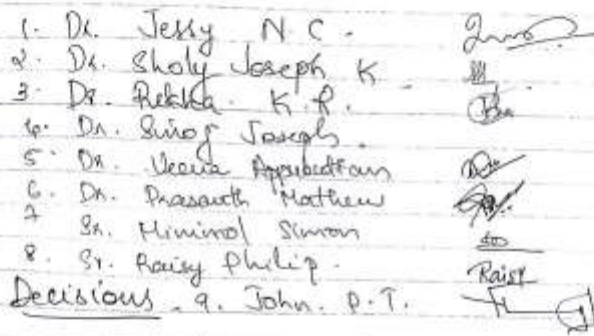 1. Dr. Jessy N C.
2. Dr. Sholy Joseph K.
3. Dr. Rekha K. R.
4. Dr. Sinoj Joseph.
5. Dr. Veena Appukuttan
6. Dr. Prasanth Mathew
7 Sr. Miminol Simon
8. Sr. Raisy Philip. Raisy
Decisions 9. John. P.T.